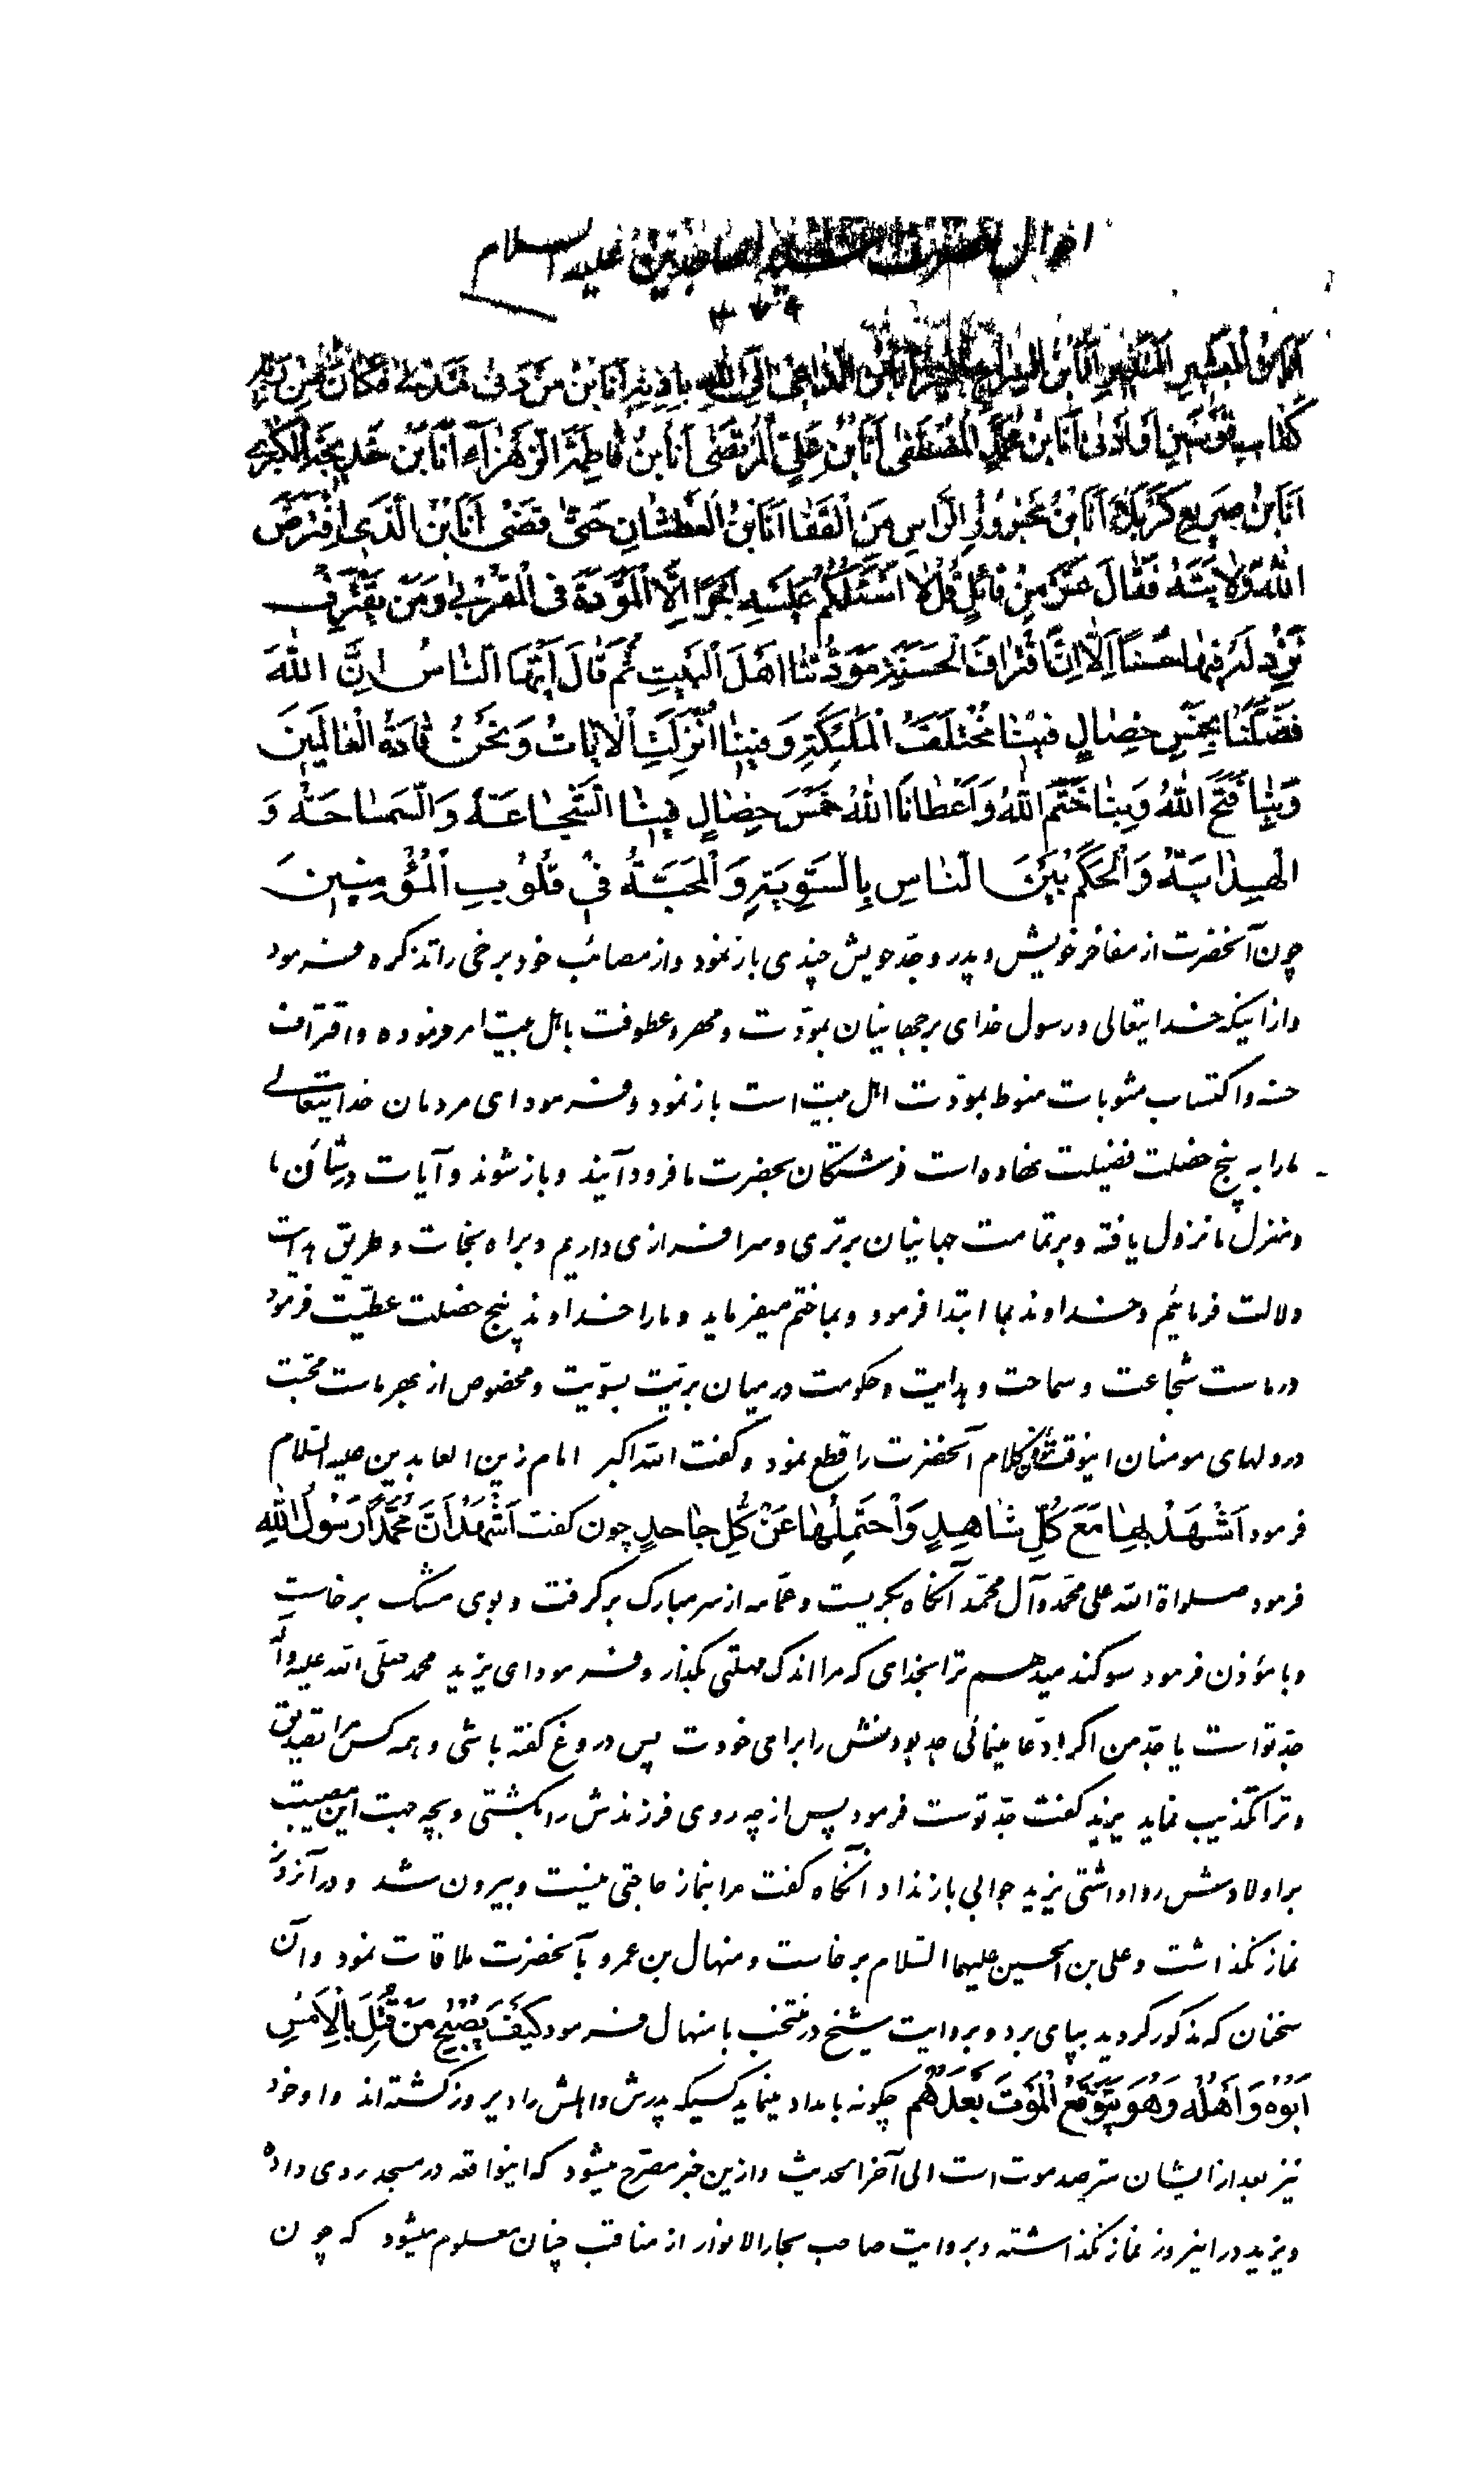 احوال حضرت سید الساجدین علیه السلام
اَنَا ابْنُ الْبَشیرِ النَّذیرِ اَنَا بْنُ السِّراجِ الْمُنیرِ اَنَا بْنُ الدّاعی اِلَی اللهِ بِاِذْنِهِ اَنَا بْنُ مَنْ دَنی فَتَدَلّی فَکانَ مِنْ رَبِّهِ
کَقابِ قَوْسَیْنِ اَوْ اَدْنی اَنَا بْنُ مُحَمَّدٍ الْمُصْطَفی اَنَا بْنُ عَلِیٍّ الْمُرْتَضی اَنَا بْنُ فاطِمَةَ الزَّهْرآءِ اَنَا بْنُ خَدیجَةَ الْکُبْری
اَنَا بْنُ صَریعِ کَرْبَلا اَنَا بْنُ مَجْزُوزِ الرَّاسِ مِنَ الْقَفا اَنَا بْنُ الْعَطْشانِ حَتّی قَضی اَنَا بْنُ الَّذی افْتَرَضَ
اللهُ وَلایَتَهُ فَقالَ عَزَّ مِنْ قائِلٍ قُلْ لا اَسْئَلُکُمْ عَلَیْهِ اَجْرًا اِلَّا الْمَوَدَّةَ فِی الْقُرْبی وَمَنْ یَقْتَرِفْ
نَزِدْ لَهُ فیها حُسْنًا اَلا اِنَّ اقْتِرافَ الْحَسَنَةِ مَوَدَّتُنا اَهْلَ الْبَیْتِ ثُمَّ قالَ اَیُّهَا النّاسُ اِنَّ اللهَ
فَضَّلَنا بِخَمْسِ خِصالٍ فینا مُخْتَلَفُ الْمَلئِکَةِ وَ فینا اُنْزِلَتِ الْایاتُ وَ نَحْنُ قادَةُ الْعالَمینَ
وَ بِنا فَتَحَ اللهُ وَ بِنا خَتَمَ اللهُ وَ اَعْطانَا اللهُ خَمْسَ خِصالٍ فینَا الشَّجاعَةُ وَ السَّماحَةُ وَ
الْهِدایَةُ وَ الْحُکْمُ بَیْنَ النّاسِ بِالسَّوِیَّةِ وَ الْمَحَبَّةُ فی قُلُوبِ الْمُؤْمِنینَ
چون آنحضرت از مفاخر خویش و پدر و جدّ خویش چندی باز نمود و از مصائب خود برخی را تذکره فرمود
و از اینکه خدایتعالی و رسول خدای بر جهانیان بمودّت و مهر و عطوفت با اهل بیت امر فرموده و اقتراف
حسنه و اکتساب مثوبات منوط بمودّت اهل بیت است باز نمود و فرمود ای مردمان خدایتعالی
ما را به پنج خصلت فضیلت نهاده است فرشتگان بحضرت ما فرود آیند و باز شوند و آیات در شان ما
و منزل ما نزول یافته و بر تمامت جهانیان برتری و سرافرازی داریم و براه نجات و طریق هدایت
دلالت فرمائیم و خداوند بما ابتدا فرمود و بما ختم میفرماید و ما را خداوند پنج خصلت عطیّت فرمود
در ماست شجاعت و سماحت و هدایت و حکومت در میان بریّت بسویّت و مخصوص از بهر ماست محبّت
در دلهای مومنان اینوقت مؤذن کلام آنحضرت را قطع نمود و گفت الله اکبر امام زین العابدین علیه السّلام
فرمود اَشْهَدُ بِها مَعَ کُلِّ شاهِدٍ وَ اَحْتَمِلُها عَنْ کُلِّ جاحِدٍ چون گفت اَشْهَدُ اَنَّ مُحَمَّدًا رَسُولُ اللهِ
فرمود صلواة الله علی محمّد و آل محمّد آنگاه بگریست و عمّامه از سر مبارک برگرفت و بوی مشک برخاست
و با مؤذن فرمود سوگند میدهم ترا بخدای که مرا اندک مهلتی بگذار و فرمود ای یزید محمد صلّی الله علیه و آله
جدّ تو است یا جدّ من اگر ادّعا مینمائی جد بودنش را برای خودت پس دروغ گفته باشی و همه کس مرا تصدیق
و ترا تکذیب نماید یزید گفت جدّ توست فرمود پس از چه روی فرزندش را بکشتی و بچه جهت این مصیبت
بر اولادش روا داشتی یزید جوابی باز نداد آنگاه گفت مرا بنماز حاجتی نیست و بیرون شد و در آنروز
نماز نگذاشت و علی بن الحسین علیهما السّلام برخاست و منهال بن عمرو با آنحضرت ملاقات نمود و آن
سخنان که مذکور گردید بپای برد و بروایت شیخ در منتخب با منهال فرمود کَیْفَ یُصْبِحُ مَنْ قُتِلَ بِالْاَمْسِ
اَبُوهُ وَ اَهْلُهُ وَ هُوَ یَتَوَقَّعُ الْمَوْتَ بَعْدَهُمْ چگونه بامداد مینماید کسیکه پدرش و اهلش را دیروز کشته اند و او خود
نیز بعد از ایشان مترصد موت است الی آخر الحدیث و ازین خبر مصرّح میشود که اینواقعه در مسجد روی داده
و یزید در اینروز نماز نگذاشته و بروایت صاحب بحار الانوار از مناقب چنان معلوم میشود که چون